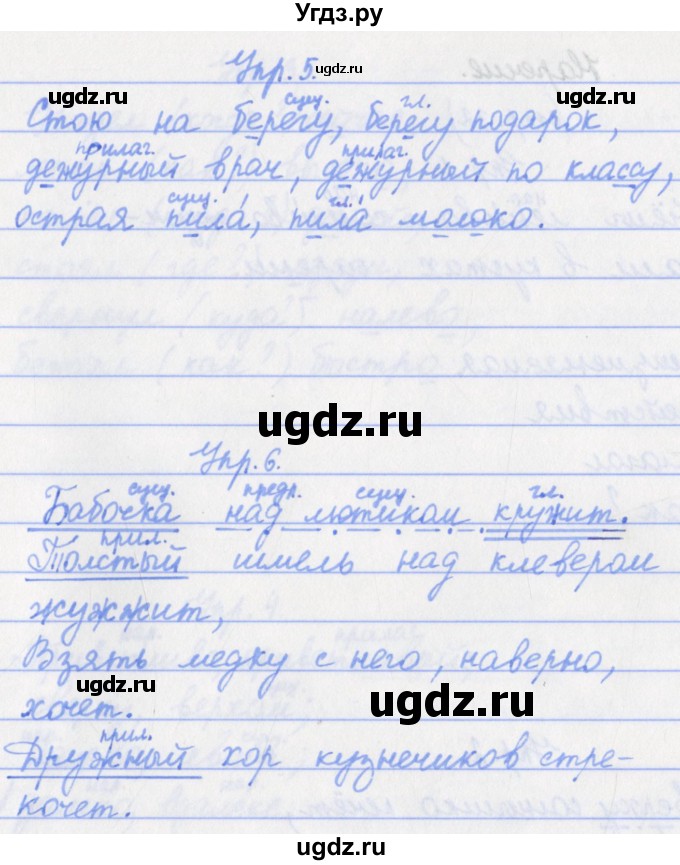 Угдз.ру
Упр. 5.
сущ. гл.
Стою на берегу, берегу подарок,
прилаг. прилаг.
дежурный врач, дежурный по классу,
сущ. гл.
острая пила, пила молоко.
Упр. 6.
сущ. предл. сущ. гл.
Бабочка над лютиком кружит.
прил.
Толстый шмель над клевером
жужжит,
Взять медку с него, наверно,
хочет.
прил.
Дружный хор кузнечиков стре-
кочет.
ugdz.ru
ugdz.ru
ugdz.ru
ugdz.ru
ugdz.ru
ugdz.ru
ugdz.ru
ugdz.ru
ugdz.ru
ugdz.ru
ugdz.ru